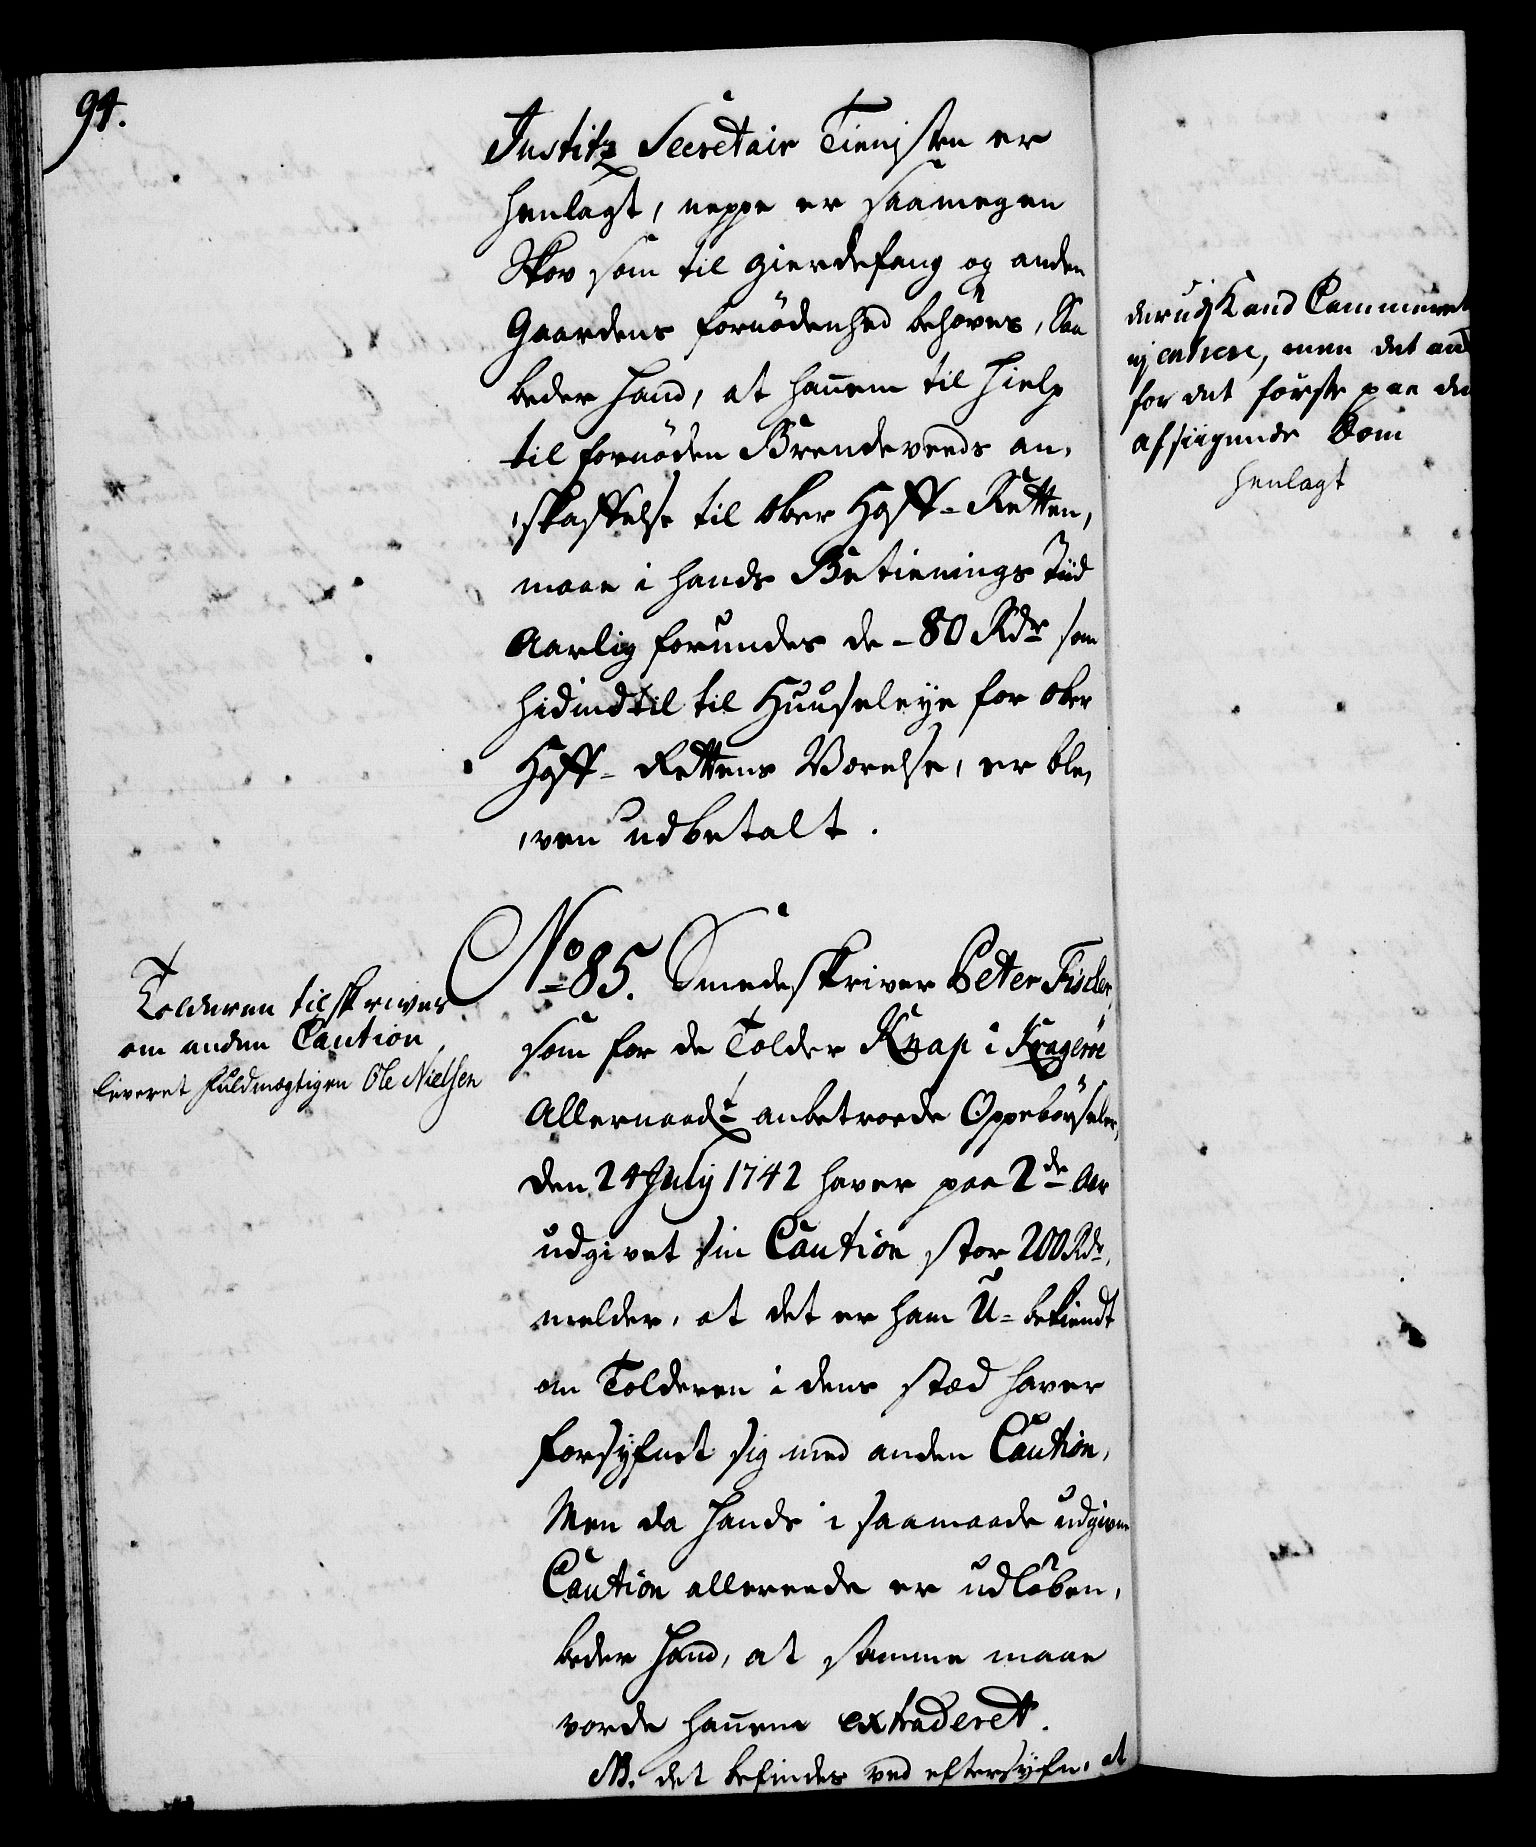 94.
Justitz Secretair Tienisten er
henlagt, neppe er saamegen
Skov som til gierdefang og anden
Gaardens fornödenhed behöves, Saa
beder hand, at hannem til hielp
til fornöden Brendeveeds an,
,skaffelse til Ober Hoff-Retten,
maae i hands Betienings Tiid
Aarlig forundes de - 80 Rdr som
hidindtil til Huuseleye for Ober
Hoff- Rettens Værelse, er ble,
,ven udbetalt.
No 85. Smedeskriver Peter Fischer,
som for de Tolder Knap i Kragerøe
Allernaadt anbetroede Oppebörseler,
den 24 July 1742 haver paa 2de Aar
udgivet sin Caution stor 200 Rdr,
melder, at det er ham U-bekiendt
om Tolderen i dens stæd haver
forsyfnet sig med anden Caution,
Men da hands i saamaade udgivne
Caution allereede er udlöben,
beder hand, at samme maae
vorde hannem extraderet.
NB. det befindes ved eftersyfn, at
Tolderen tilskrives
om anden Caution,
leveret fuldmægtigen Ole Nielsen
derudj Kand Cammeret
ej entrere, men det
for det første paa
afsiigende Dom
henlagt